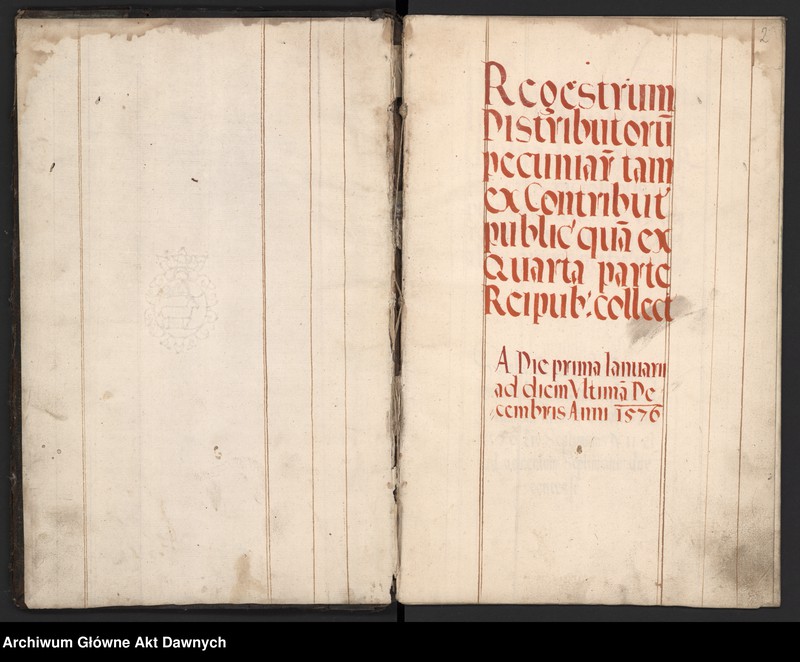 2
Regestrum
Distributorū
pecuniar̄ tam
ex Contribut'
public' quā ex
Quarta parte
Reipub: collect
A Die prima Ianuarii
ad diem Vltimā De
cembris Anni 1576
Archiwum Główne Akt Dawnych